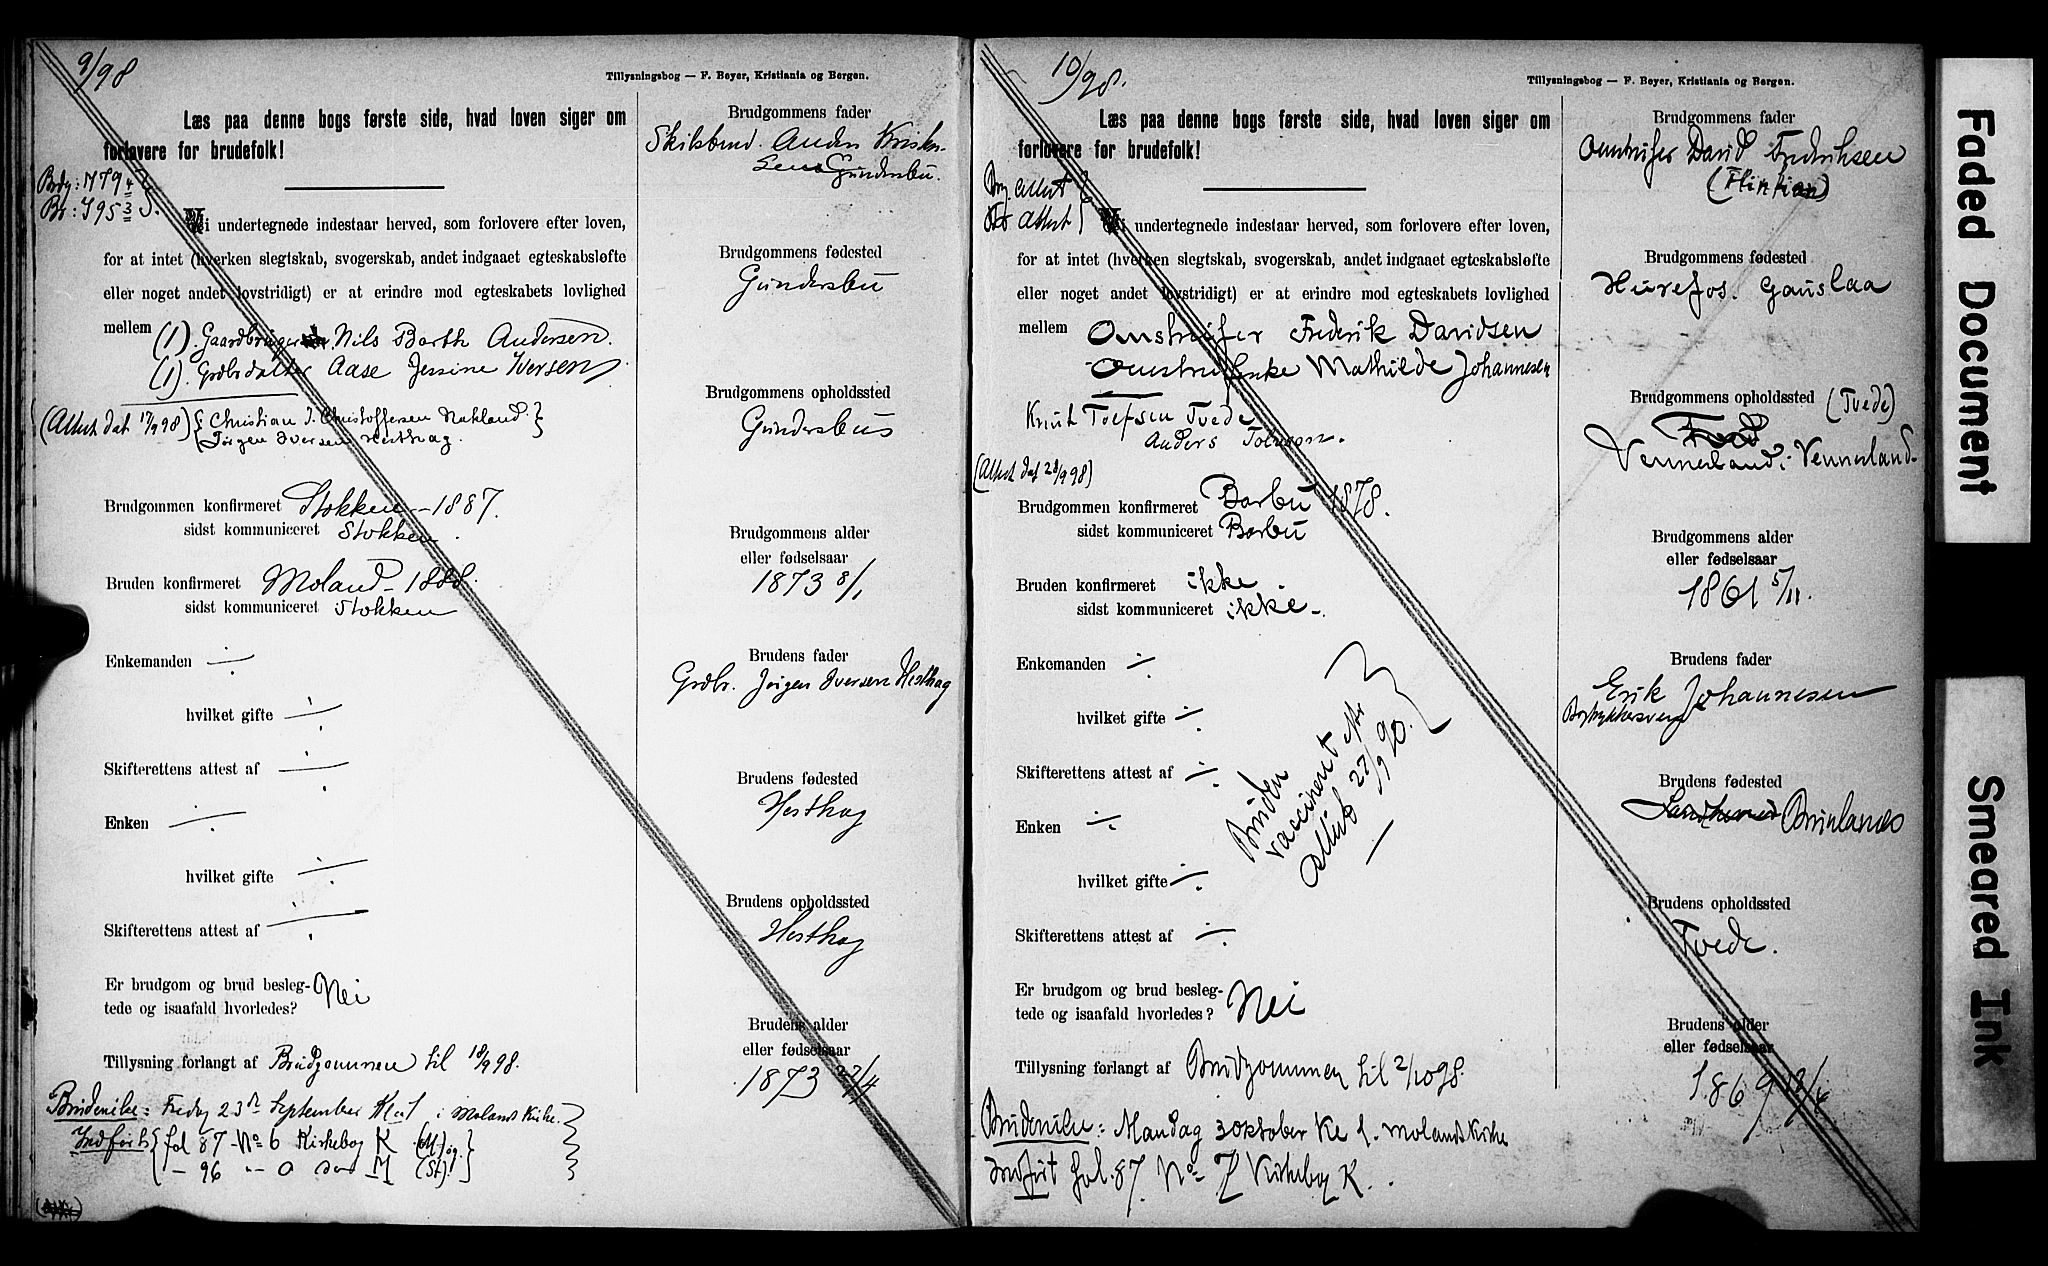 9/98
Tillysningsbog — F. Beyer, Kristiania og Bergen.
Læs paa denne bogs første side, hvad loven siger om
forlovere for brudefolk!
Vi undertegnede indestaar herved, som forlovere efter loven,
for at intet (hverken slegtskab, svogerskab, andet indgaaet egteskabsløfte
eller noget andet lovstridigt) er at erindre mod egteskabets lovlighed
mellem (1). Gaardbruger Nils Barth Andersen.
(1). Grdbrdatter Aase Jessine Iversen
(Attest dat 17/9 98) { Christian J. Christoffersen Nakland. }
Jørgen Iversen Hesthag.
Brudgommen konfirmeret Stokken - 1887.
sidst kommuniceret Stokken.
Bruden konfirmeret Moland - 1888.
sidst kommuniceret Stokken
Enkemanden
hvilket gifte
Skifterettens attest af
Enken
hvilket gifte
Skifterettens attest af
Er brudgom og brud besleg-
tede og isaafald hvorledes? Nei
Tillysning forlangt af Brudgommen til 18/9 98.
Brudevilse: Fredag 23de September Kl. 1 i Molands Kirke.
Indført { fol 87 No 6 Kirkebog K (M) og.
- 96 " - 0 do M (St).
Brudgommens fader
Skilsbmd. Anders Kristen-
sen Gundersbu.
Brudgommens fødested
Gundersbu
Brudgommens opholdssted
Gundersbu
Brudgommens alder
eller fødselsaar
1873 8/1
Brudens fader
Grdbr. Jørgen Iversen Hesthag
Brudens fødested
Hesthag
Brudens opholdssted
Hesthag
Brudens alder
eller fødselsaar
1873 27/4
10/98.
Tillysningsbog — F. Beyer, Kristiania og Bergen.
Læs paa denne bogs første side, hvad loven siger om
forlovere for brudefolk!
Brg. attest
Br attest
Vi undertegnede indestaar herved, som forlovere efter loven,
for at intet (hverken slegtskab, svogerskab, andet indgaaet egteskabsløfte
eller noget andet lovstridigt) er at erindre mod egteskabets lovlighed
mellem Omstreifer Frederik Davidsen
Omstreiferske Mathilde Johannesen
Knut Toefsen Tvede
Anders
(Attest dat 28/9 98)
Brudgommen konfirmeret Barbu 1878.
sidst kommuniceret Barbu
Bruden konfirmeret ikke
sidst kommuniceret ikke -.
Enkemanden
hvilket gifte
Skifterettens attest af
Enken
hvilket gifte
Skifterettens attest af
Bruden
vaccineret efter
attest 22/9 90.
Er brudgom og brud besleg-
tede og isaafald hvorledes? Nei
Tillysning forlangt af Brudgommen til 2/10 98.
Brudevilse: Mandag 3 oktober Kl 1. Molands Kirke
Indført fol. 87. No 7 Kirkebog K.
Brudgommens fader
Omstreifer David Fredriksen
(Flintian)
Brudgommens fødested
Hurefos. Gauslaa
Brudgommens opholdssted (Tvede)
Vennerland i Vennerland.
Brudgommens alder
eller fødselsaar
1861 5/11.
Brudens fader
Erik Johannesen
Brudens fødested
Brunlanes
Brudens opholdssted
Tvede.
Brudens alder
eller fødselsaar
1869 12/6
Faded Document
Smeared Ink